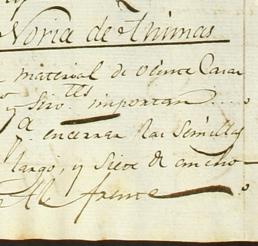 Noria de Animas
material de veinte Casa
y Siro.tes importan ....o
a encerrar las Semillas
largo, y Siete de ancho
Al frente o